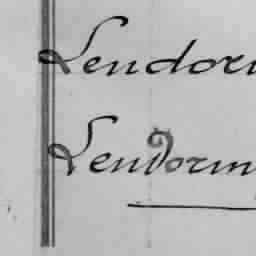 Lendorm
Lendorm